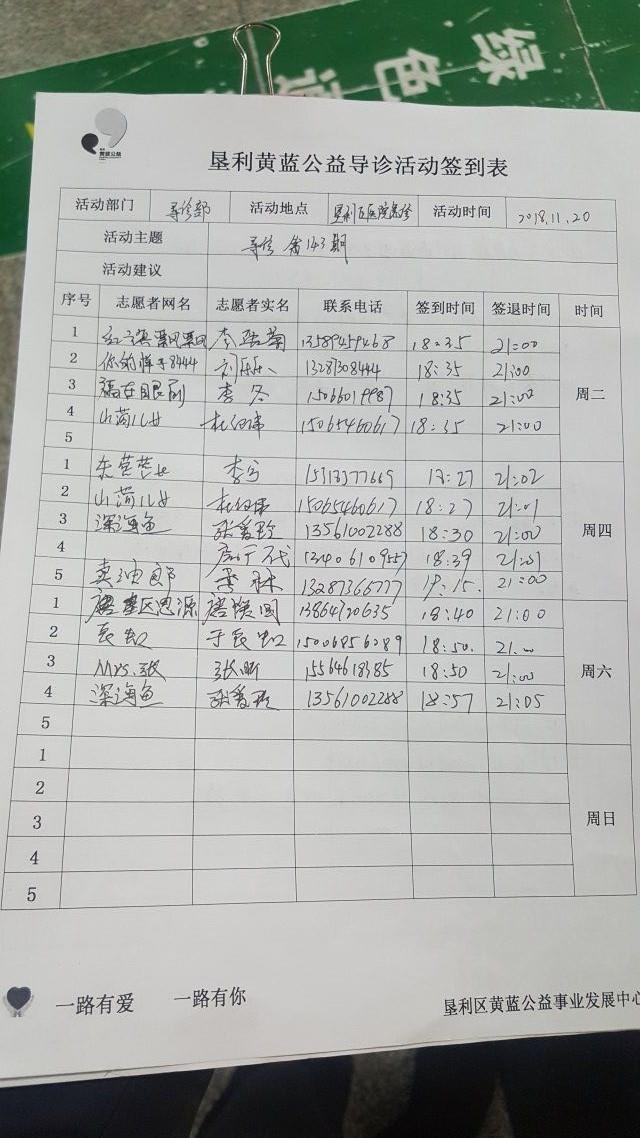 绿色通
黄蓝公益
垦利黄蓝公益导诊活动签到表
活动部门 导诊部 活动地点 垦利区医院急诊 活动时间 2018.11.20
活动主题 导诊 第143期
活动建议
序号 志愿者网名 志愿者实名 联系电话 签到时间 签退时间 时间
1 13589459468 18:35 21:00
2 你的样子8444 13287308444 18:35 21:00
3 福在眼前 李冬 15066019987 18:35 21:00 周二
4 山菏儿女 15065460617 18:35 21:00
5
1 李宁 15313377669 17:27 21:02
2 山菏儿女 15065460617 18:27 21:01
3 深海鱼 张爱玲 13561002288 18:30 21:00 周四
4 18:39 21:01
5 卖油郎 李林 13287366777 19:15. 21:00
1 13864720635 18:40 21:00
2 于辰虹 15006856289 18:50. 21.00
3 Mrs.张 张昕 15564618385 18:50 21:00 周六
4 深海鱼 张爱玲 13561002288 18:57 21:05
5
1
2
3 周日
4
5
一路有爱 一路有你 垦利区黄蓝公益事业发展中心